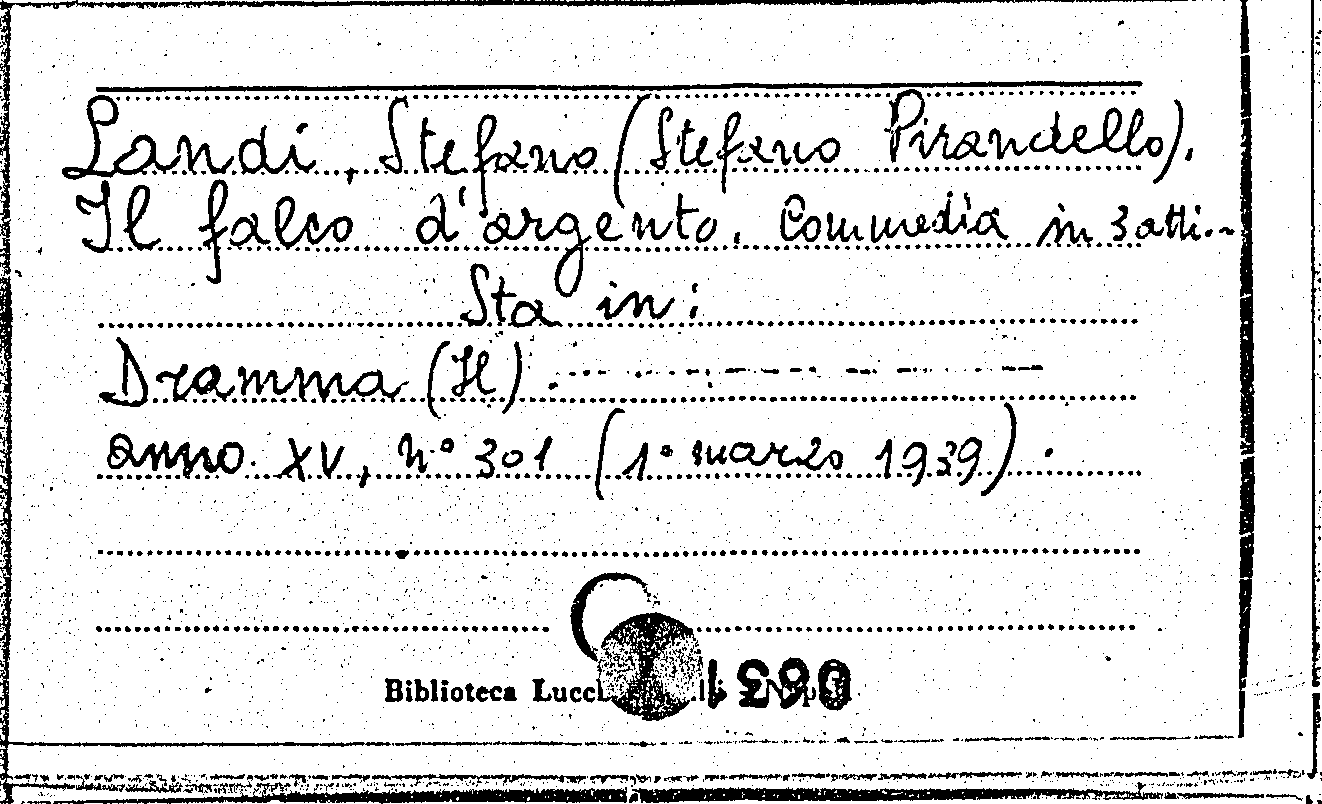 Landi, Stefano (Stefano Pirandello).
Il falco d'argento. Commedia in 3 atti.-
Sta in:
Dramma (Il) . - - - - - - - -
anno XV, n° 301 (1° marzo 1939).
Biblioteca